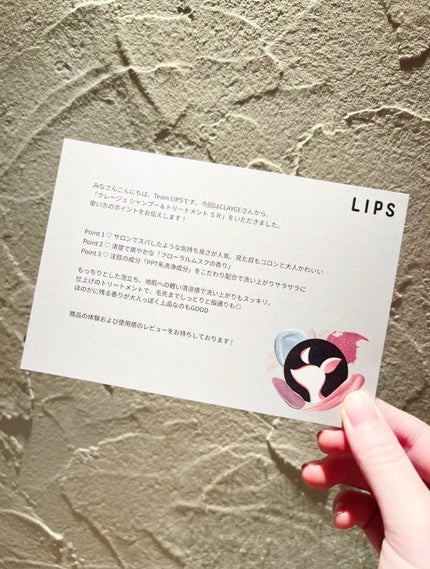 LIPS
みなさんこんにちは、Team LIPSです。今回はCLAYGEさんから、
「クレージュ シャンプー&トリートメント ＳＲ」をいただきました。
使い方のポイントをお伝えします！
Point 1 ♡ サロンでスパしたような気持ち良さが人気、見た目もコロンと大人かわいい
Point 2 ♡ 清楚で爽やかな「フローラルムスクの香り」
Point 3 ♡ 注目の成分「PPT系洗浄成分」をこだわり配合で洗い上がりサラサラに
もっちりとした泡立ち、地肌への軽い清涼感で洗い上がりもスッキリ。
仕上げのトリートメントで、毛先までしっとりと指通りも◎
ほのかに残る香りが大人っぽく上品なのもGOOD
商品の体験および使用感のレビューをお待ちしております！